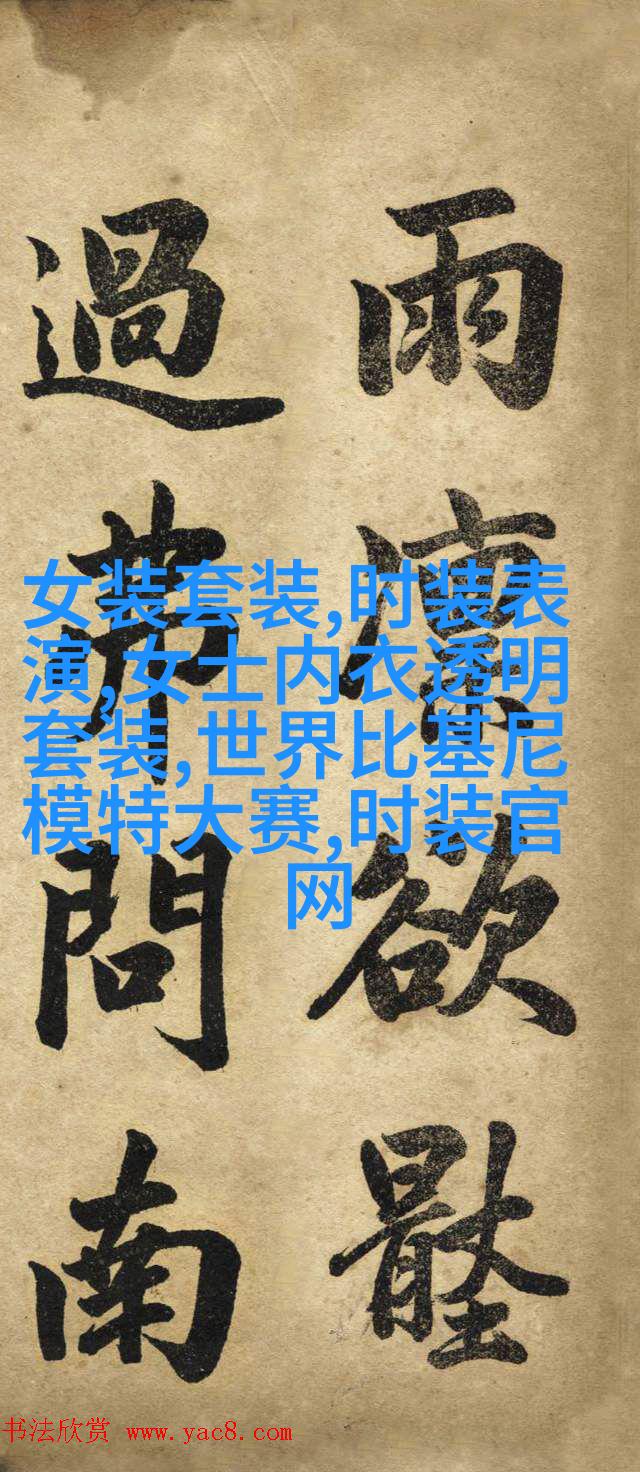 雨凛欲
過芾問南
女装套装,时装表
演,女士内衣透明
套装,世界比基尼
模特大赛,时装官
网
书法欣赏 www.yac8.com